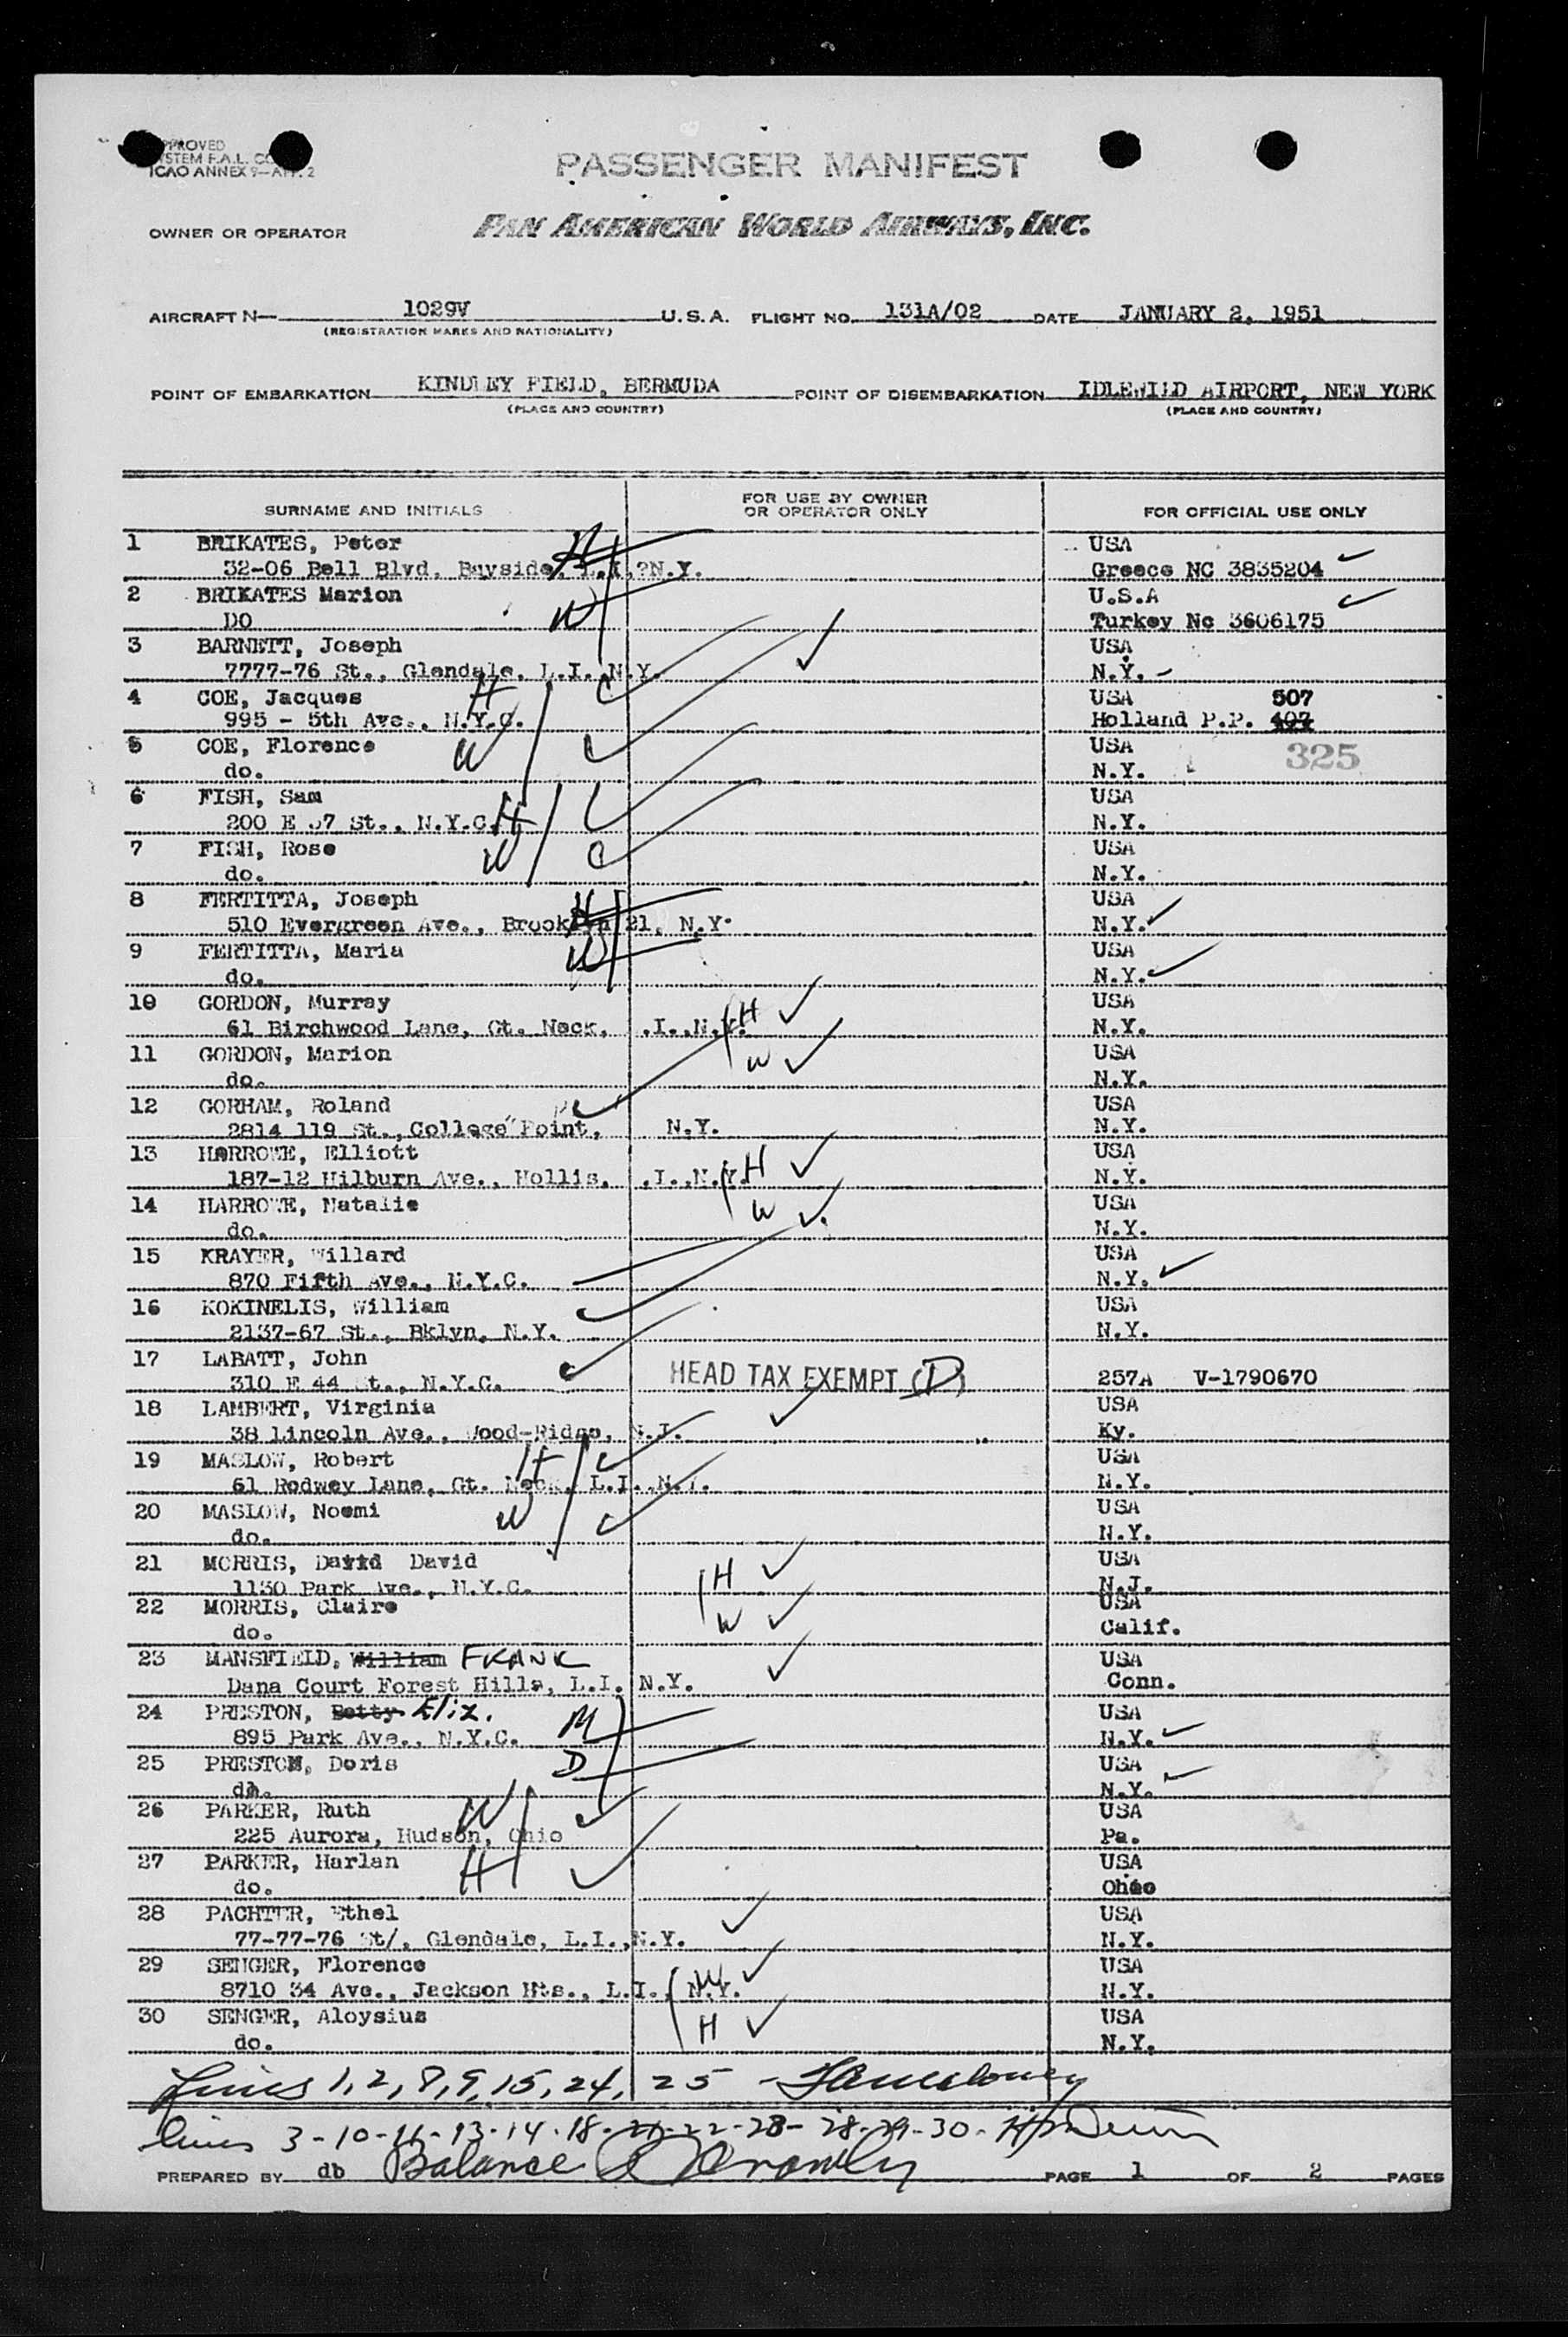 APPROVED
SYSTEM F.A.L. CO
ICAO ANNEX 9—APP. 2
PASSENGER MANIFEST
OWNER OR OPERATOR
PAN AMERICAN WORLD AIRWAYS, INC.
AIRCRAFT N— 1029V U.S.A. FLIGHT NO. 131A/02 DATE JANUARY 2, 1951
(REGISTRATION MARKS AND NATIONALITY)
POINT OF EMBARKATION KINDLEY FIELD, BERMUDA POINT OF DISEMBARKATION IDLEWILD AIRPORT, NEW YORK
(PLACE AND COUNTRY) (PLACE AND COUNTRY)
SURNAME AND INITIALS FOR USE BY OWNER OR OPERATOR ONLY FOR OFFICIAL USE ONLY
1 BRIKATES, Peter H USA
32-06 Bell Blvd, Bayside, L.I.?N.Y. Greece NC 3835204
2 BRIKATES Marion W U.S.A
DO Turkey Nc 3606175
3 BARNETT, Joseph USA
7777-76 St., Glendale, L.I. N.Y. N.Y.
4 COE, Jacques H USA 507
995 - 5th Ave., N.Y.C. Holland P.P. 407
5 COE, Florence W USA 325
do. N.Y.
6 FISH, Sam USA
200 E 57 St., N.Y.C. H N.Y.
7 FISH, Rose W USA
do. N.Y.
8 FERTITTA, Joseph H USA
510 Evergreen Ave., Brooklyn 21, N.Y. N.Y.
9 FERTITTA, Maria W USA
do. N.Y.
10 GORDON, Murray H USA
61 Birchwood Lane, Gt. Neck, .I.,N.Y. N.Y.
11 GORDON, Marion W USA
do. N.Y.
12 GORHAM, Roland USA
2814 119 St., College Point, N.Y. N.Y.
13 HARROWE, Elliott H USA
187-12 Hilburn Ave., Hollis, .I.,N.Y. N.Y.
14 HARROWE, Natalie W USA
do. N.Y.
15 KRAYER, Willard USA
870 Fifth Ave., N.Y.C. N.Y.
16 KOKINELIS, William USA
2137-67 St., Bklyn, N.Y. N.Y.
17 LABATT, John HEAD TAX EXEMPT (D)
310 E 44 St., N.Y.C. 257A V-1790670
18 LAMBERT, Virginia USA
38 Lincoln Ave., Wood-Ridge, N.J. Ky.
19 MASLOW, Robert H USA
61 Rodwey Lane, Gt. Neck, L.I. N.Y. N.Y.
20 MASLOW, Noemi W USA
do. N.Y.
21 MORRIS, David David H USA
1130 Park Ave., N.Y.C. N.J.
22 MORRIS, Claire W USA
do. Calif.
23 MANSFIELD, William FRANK USA
Dana Court Forest Hills, L.I. N.Y. Conn.
24 PRESTON, Betty Eliz. M USA
895 Park Ave., N.Y.C. N.Y.
25 PRESTON, Doris D USA
do. N.Y.
26 PARKER, Ruth W USA
225 Aurora, Hudson, Ohio Pa.
27 PARKER, Harlan H USA
do. Ohio
28 PACHTER, Ethel USA
77-77-76 St/, Glendale, L.I.,N.Y. N.Y.
29 SENGER, Florence W USA
8710 34 Ave., Jackson Hts., L.I., N.Y. N.Y.
30 SENGER, Aloysius H USA
do. N.Y.
Lines 1, 2, 8, 9, 15, 24, 25 -
lines 3-10-11-13-14-18-21-22-23-28-29-30-
PREPARED BY db Balance PAGE 1 OF 2 PAGES